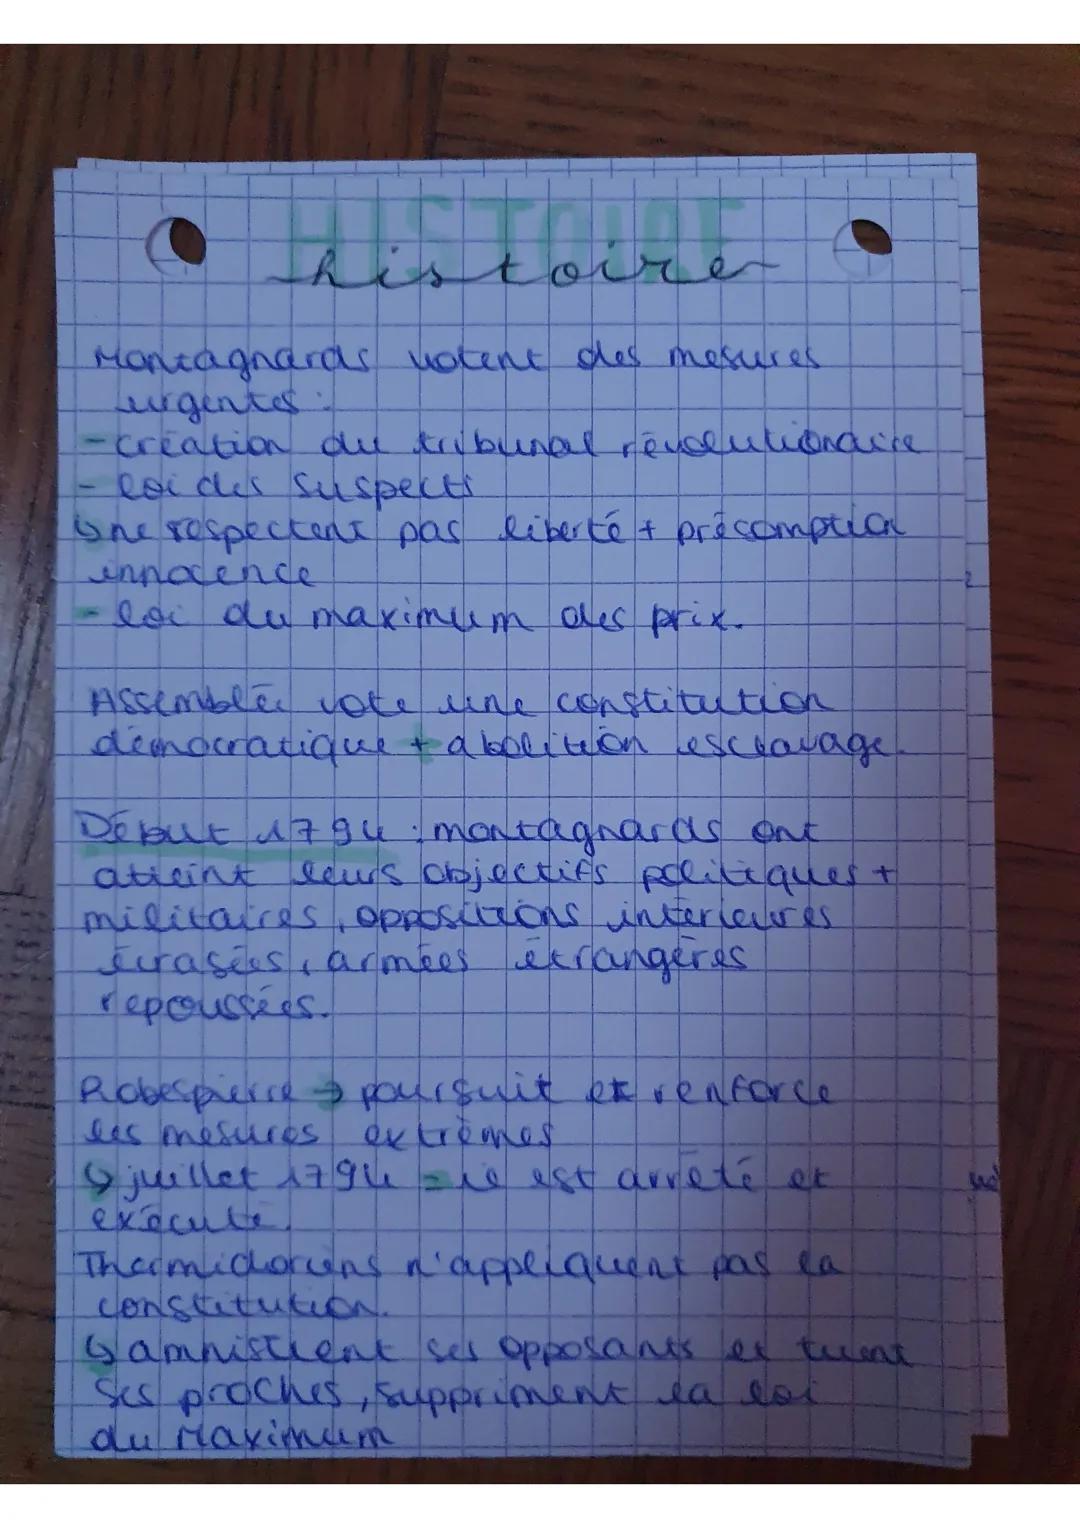 HISTOIRE
histoire
Montagnards votent des mesures
urgentes :
- création du tribunal révolutionaire
- loi des suspects
↳ ne respectent pas liberté + présomption
innocence
- loi du maximum des prix.
Assemblée vote une constitution
démocratique + abolition esclavage.
Début 1794 : montagnards ont
atteint leurs objectifs politiques +
militaires, oppositions intérieures
écrasées, armées étrangères
repoussées.
Robespierre → poursuit et renforce
les mesures extrêmes
↳ juillet 1794 = il est arrêté et
exécuté.
Thermidoriens n'appliquent pas la
constitution.
↳ amnistient ses opposants et tuent
ses proches, suppriment la loi
du Maximum